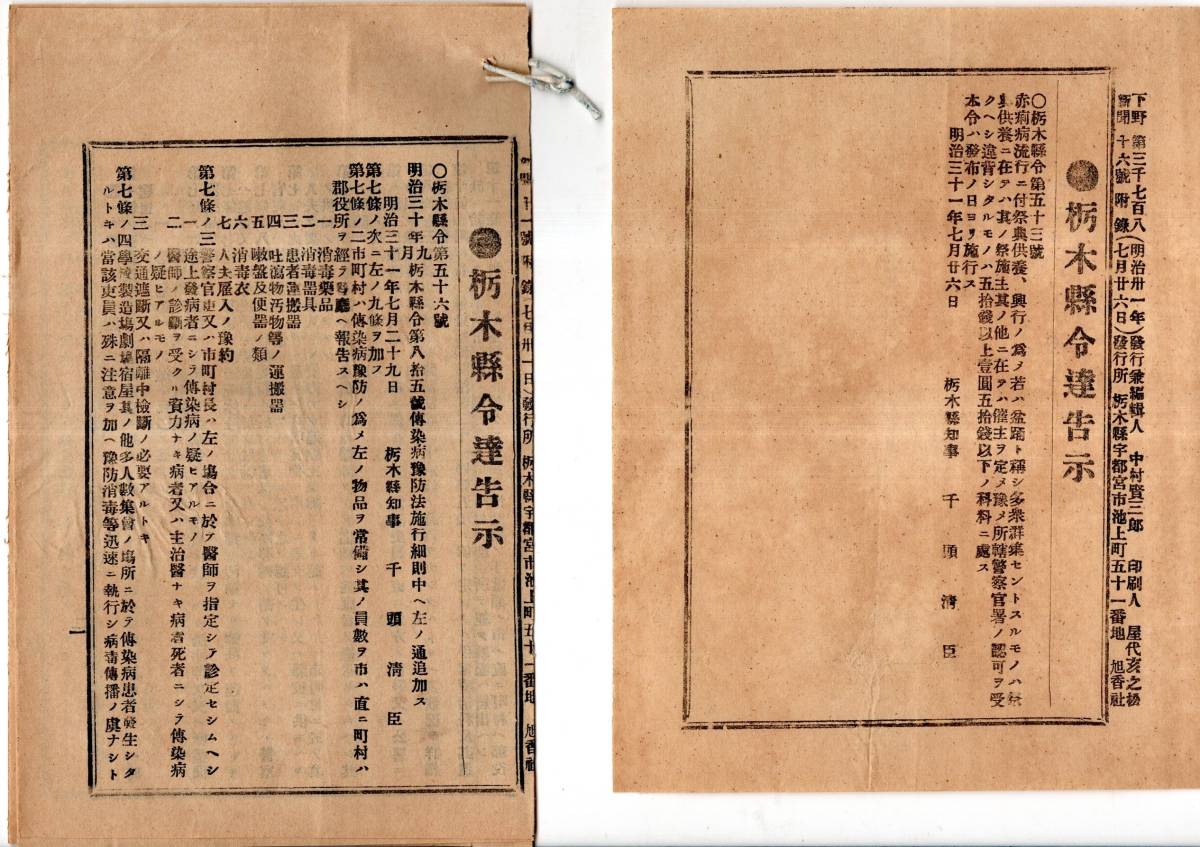 下野新聞 第三千七百八十六號附錄 (明治卅一年七月廿六日) 發行兼編輯人 中村賢三郎 印刷人 屋代亥之松
發行所 栃木縣宇都宮市池上町五十一番地 旭香社
栃木縣令達吿示
〇栃木縣令第五十三號
赤痢病流行ニ付祭典供養、興行ノ爲メ若ハ盆踊ト稱シ多衆群集セントスルモノハ祭
典供養ニ在テハ其ノ祭施主其ノ他ニ在テハ催主ヲ定メ豫メ所轄警察官署ノ認可ヲ受
クヘシ違背シタルモノハ五拾錢以上壹圓五拾錢以下ノ科料ニ處ス
本令ハ發布ノ日ヨリ施行ス
明治三十一年七月廿六日 栃木縣知事 千頭淸臣
附錄 (七月卅一日) 發行所 栃木縣宇都宮市池上町五十一番地 旭香社
栃木縣令達吿示
〇栃木縣令第五十六號
明治三十年九月栃木縣令第八拾五號傳染病豫防法施行細則中ヘ左ノ通追加ス
明治三十一年七月二十九日 栃木縣知事 千頭淸臣
第七條ノ次ニ左ノ九條ヲ加フ
第七條ノ二 市町村ハ傳染病豫防ノ爲メ左ノ物品ヲ常備シ其ノ員數ヲ市ハ直ニ町村ハ
郡役所ヲ經テ縣廳ヘ報告スヘシ
一 消毒藥品
二 消毒器具
三 患者運搬器
四 吐瀉物汚物等ノ運搬器
五 嗽盤及便器ノ類
六 消毒衣
七 人夫雇入ノ豫約
第七條ノ三 警察官吏又ハ市町村長ハ左ノ塲合ニ於テ醫師ヲ指定シテ診定セシムヘシ
一 途上發病者ニシテ傳染病ノ疑ヒアルモノ
二 醫師ノ診斷ヲ受クル資力ナキ病者又ハ主治醫ナキ病者死者ニシテ傳染病
ノ疑ヒアルモノ
三 交通遮斷又ハ隔離中檢斷ノ必要アルトキ
第七條ノ四 學校製造塲劇塲宿屋其ノ他多人數集會ノ塲所ニ於テ傳染病患者發生シタ
ルトキハ當該吏員ハ殊ニ注意ヲ加ヘ豫防消毒等迅速ニ執行シ病毒傳播ノ虞ナシト
一